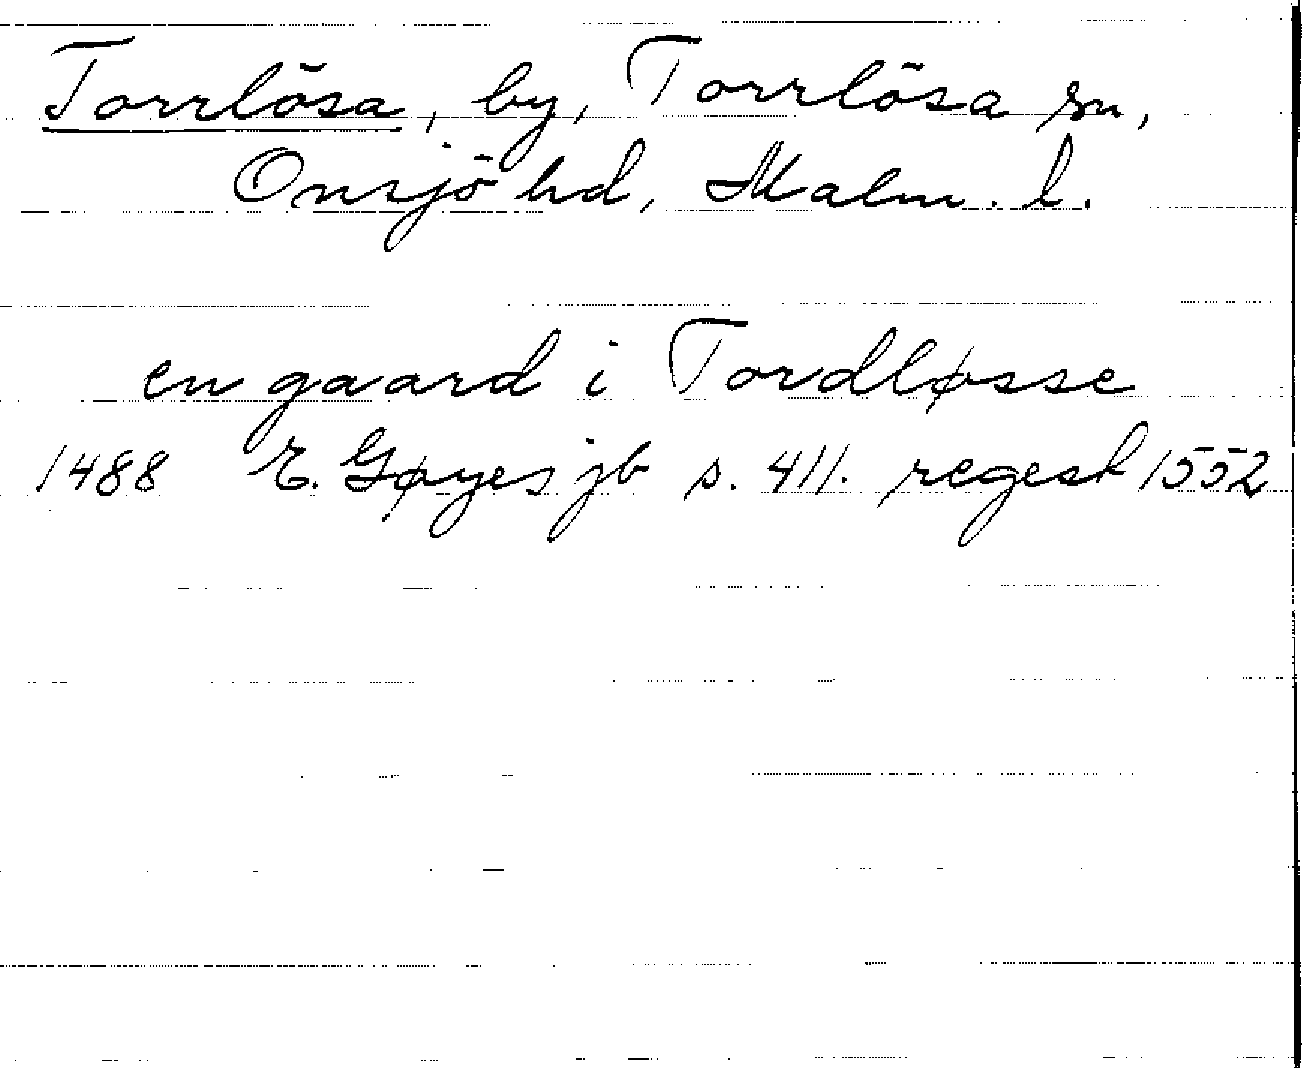 Torrlösa, by, Torrlösa sn,
Onsjö hd, Malm. l.
en gaard i Tordløsse
1488 E. Gøyes jb s. 411. regest 1552